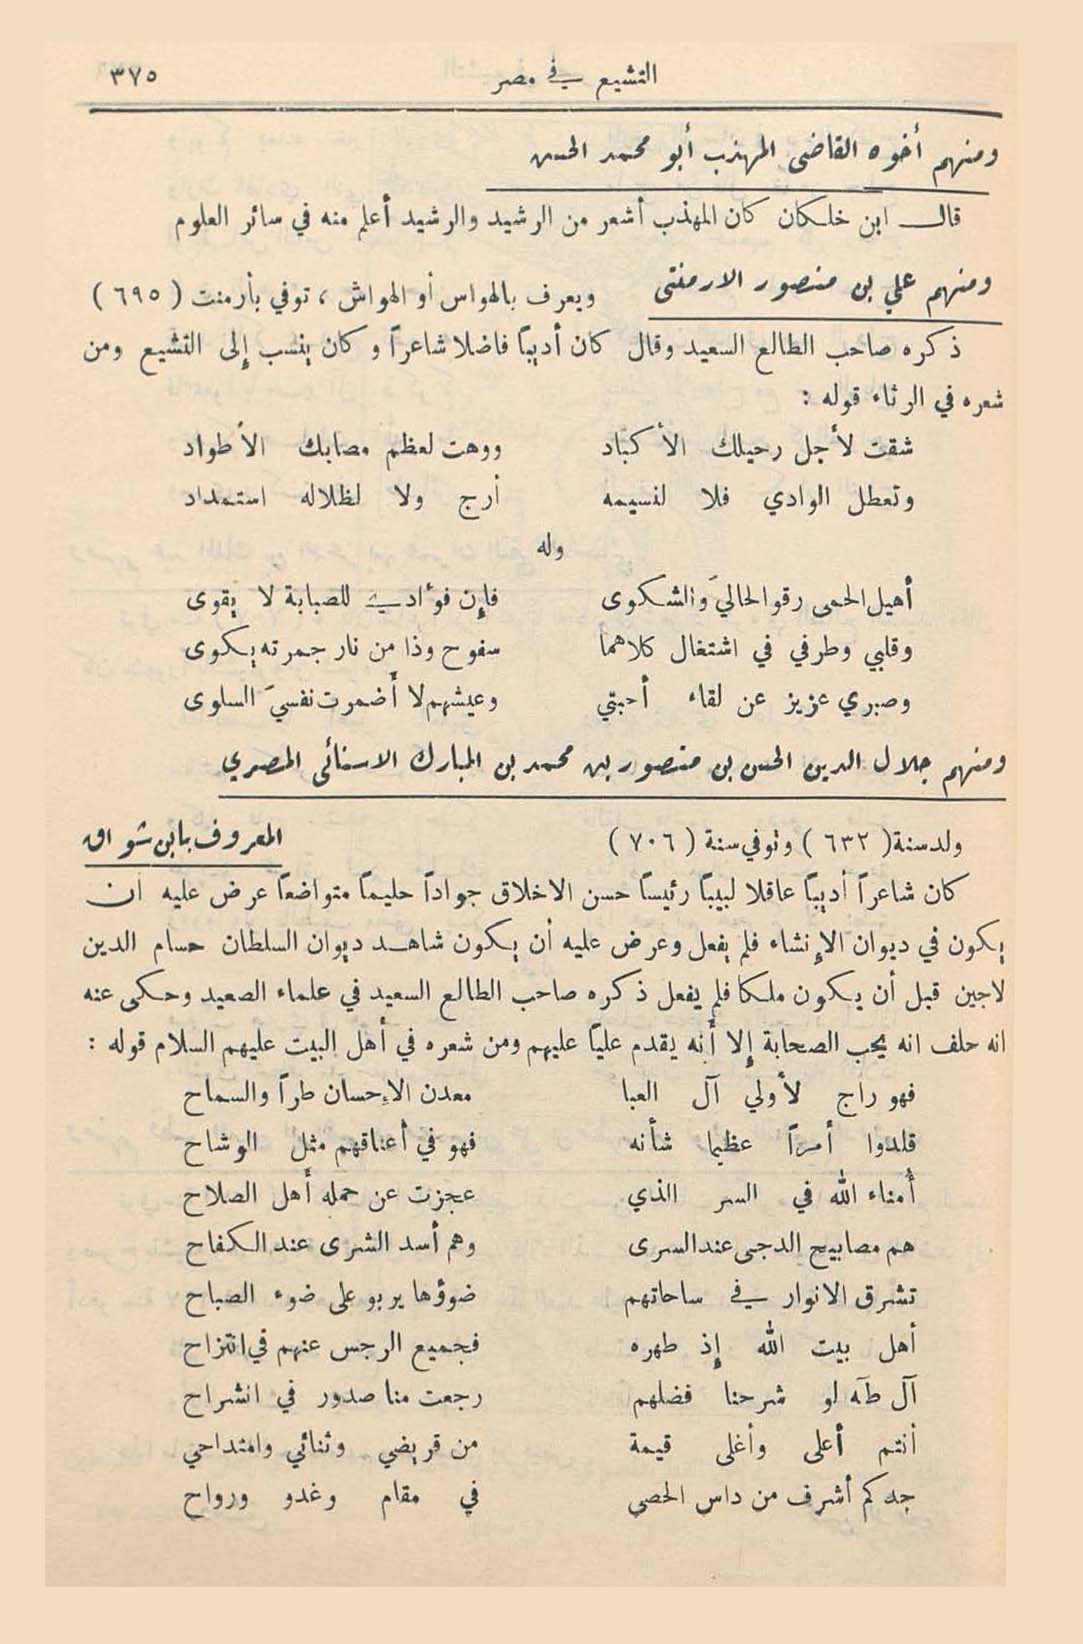 التشيع في مصر ٣٧٥
ومنهم أخوه القاضي المهذب أبو محمد الحسن
قال ابن خلكان كان المهذب أشعر من الرشيد والرشيد أعلم منه في سائر العلوم
ومنهم علي بن منصور الارمنتي ويعرف بالهواس أو الهواش ، توفي بأرمنت ( ٦٩٥ )
ذكره صاحب الطالع السعيد وقال كان أديباً فاضلا شاعراً وكان ينسب إلى التشيع ومن
شعره في الرثاء قوله :
شقت لأجل رحيلك الأكباد ووهت لعظم مصابك الأطواد
وتعطل الوادي فلا لنسيمه أرج ولا لظلاله استمداد
وله
أهيل الحمى رقوا لحاليَ والشكوى فإن فؤادي للصبابة لا يقوى
وقلبي وطرفي في اشتغال كلاهما سفوح وذا من نار جمرته يكوى
وصبري عزيز عن لقاء أحبتي وعيشهم لا أضمرت نفسيَ السلوى
ومنهم جلال الدين الحسن بن منصور بن محمد بن المبارك الاسنائي المصري
ولد سنة ( ٦٣٢ ) وتوفي سنة ( ٧٠٦ ) المعروف بابن شواق
كان شاعراً أديباً عاقلا لبيباً رئيساً حسن الاخلاق جواداً حليماً متواضعاً عرض عليه ان
يكون في ديوان الإنشاء فلم يفعل وعرض عليه أن يكون شاهد ديوان السلطان حسام الدين
لاجين قبل أن يكون ملكا فلم يفعل ذكره صاحب الطالع السعيد في علماء الصعيد وحكى عنه
انه حلف انه يحب الصحابة إلا أنه يقدم علياً عليهم ومن شعره في أهل البيت عليهم السلام قوله :
فهو راج لأولي آل العبا معدن الإحسان طراً والسماح
قلدوا أمراً عظيما شأنه فهو في أعناقهم مثل الوشاح
أمناء الله في السر الذي عجزت عن حمله أهل الصلاح
هم مصابيح الدجى عند السرى وهم أسد الشرى عند الكفاح
تشرق الانوار في ساحاتهم ضوؤها يربو على ضوء الصباح
أهل بيت الله إذ طهره فجميع الرجس عنهم في انتزاح
آل طه لو شرحنا فضلهم رجعت منا صدور في انشراح
أنتم أعلى وأغلى قيمة من قريضي وثنائي وامتداحي
جدكم أشرف من داس الحصى في مقام وغدو ورواح